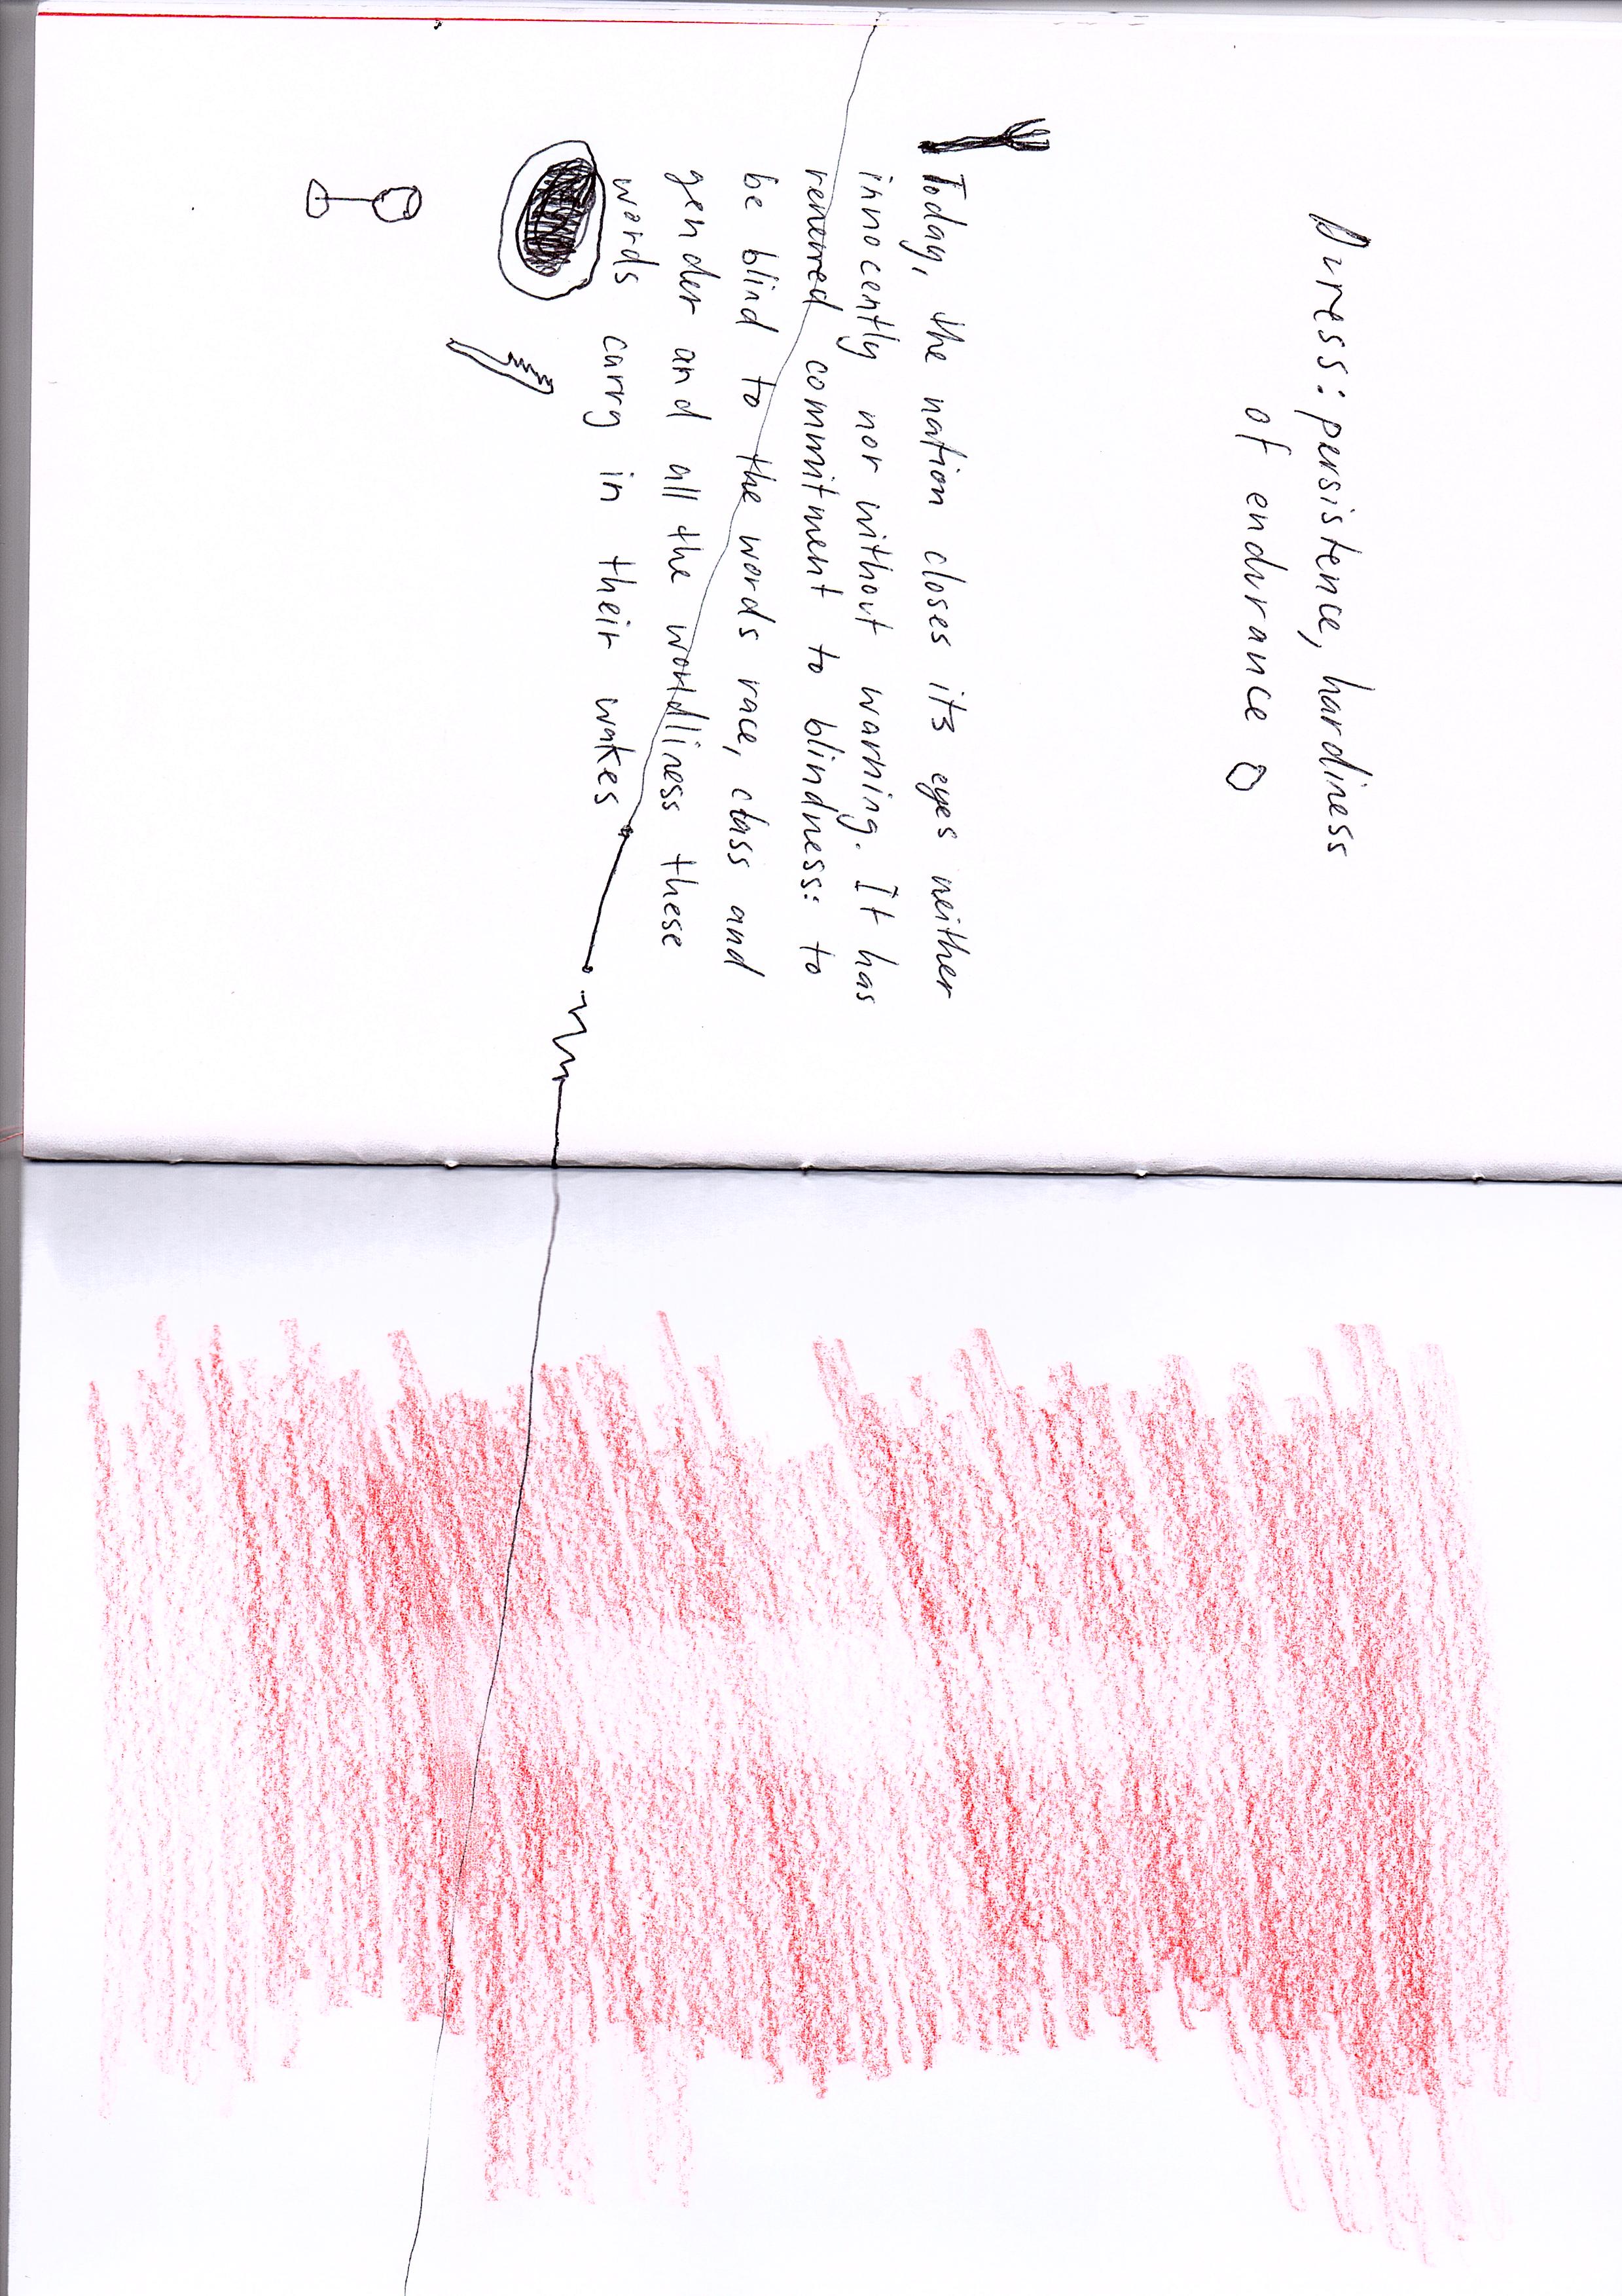 Duress: persistence, hardiness
of endurance
Today, the nation closes its eyes neither
innocently nor without warning. It has
renewed commitment to blindness: to
be blind to the words race, class and
gender and all the worldliness these
words carry in their wakes